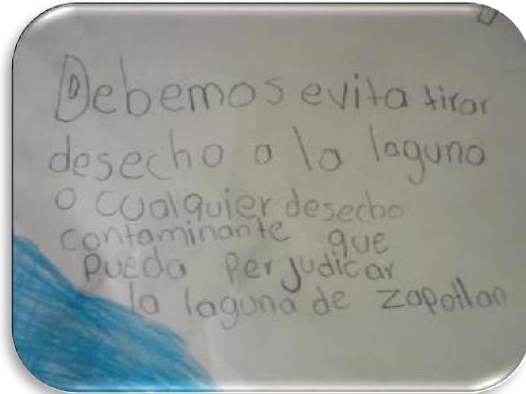 Debemos evita tirar
desecho a la laguna
o cualquier desecho
contaminante que
pueda perjudicar
la laguna de zapotlan